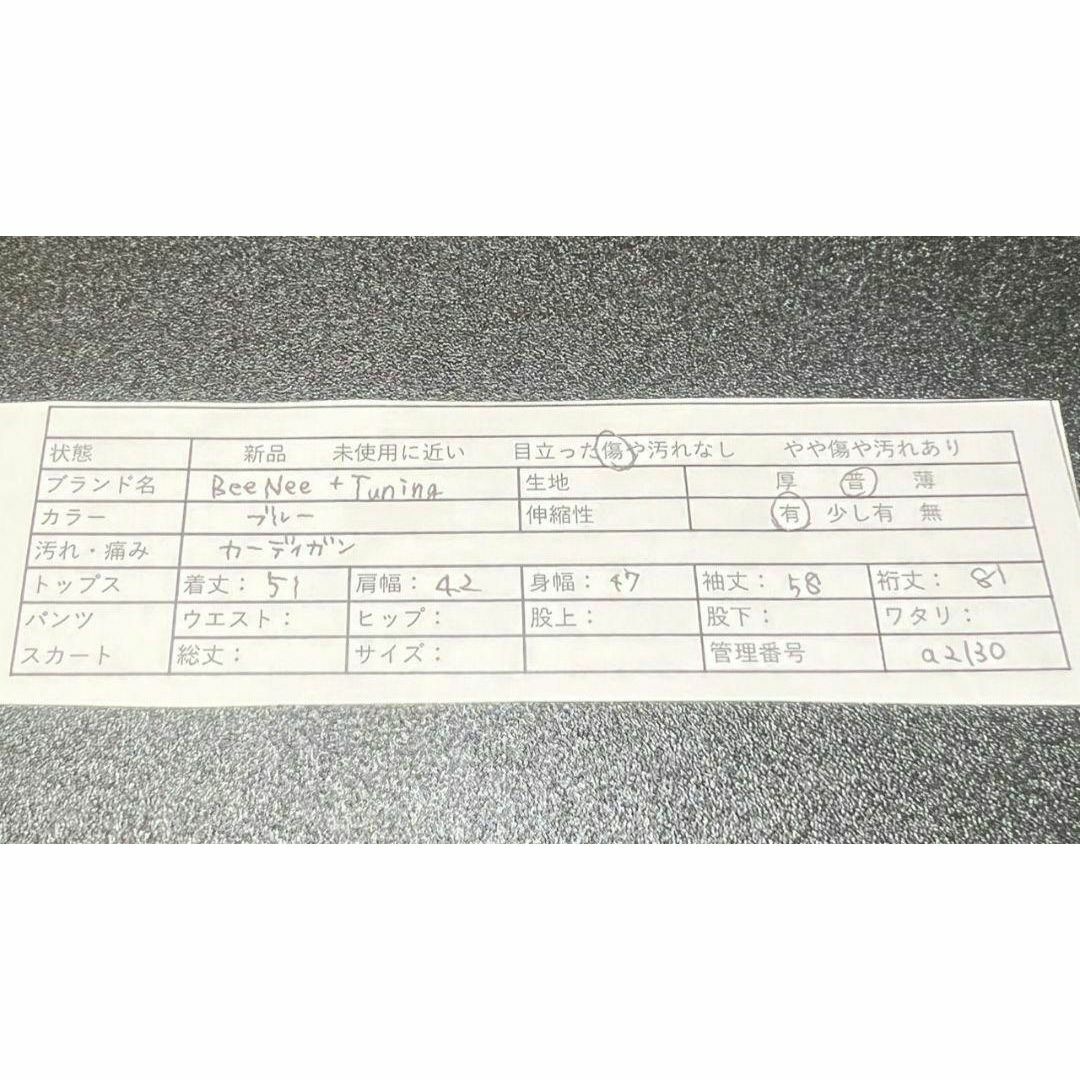 状態 新品 未使用に近い 目立った傷や汚れなし やや傷や汚れあり
ブランド名 BeeNee + Tuning 生地 厚 普 薄
カラー ブルー 伸縮性 有 少し有 無
汚れ・痛み カーディガン
トップス 着丈：51 肩幅：42 身幅：47 袖丈：58 裄丈：81
パンツ ウエスト： ヒップ： 股上： 股下： ワタリ：
スカート 総丈： サイズ： 管理番号 a2130